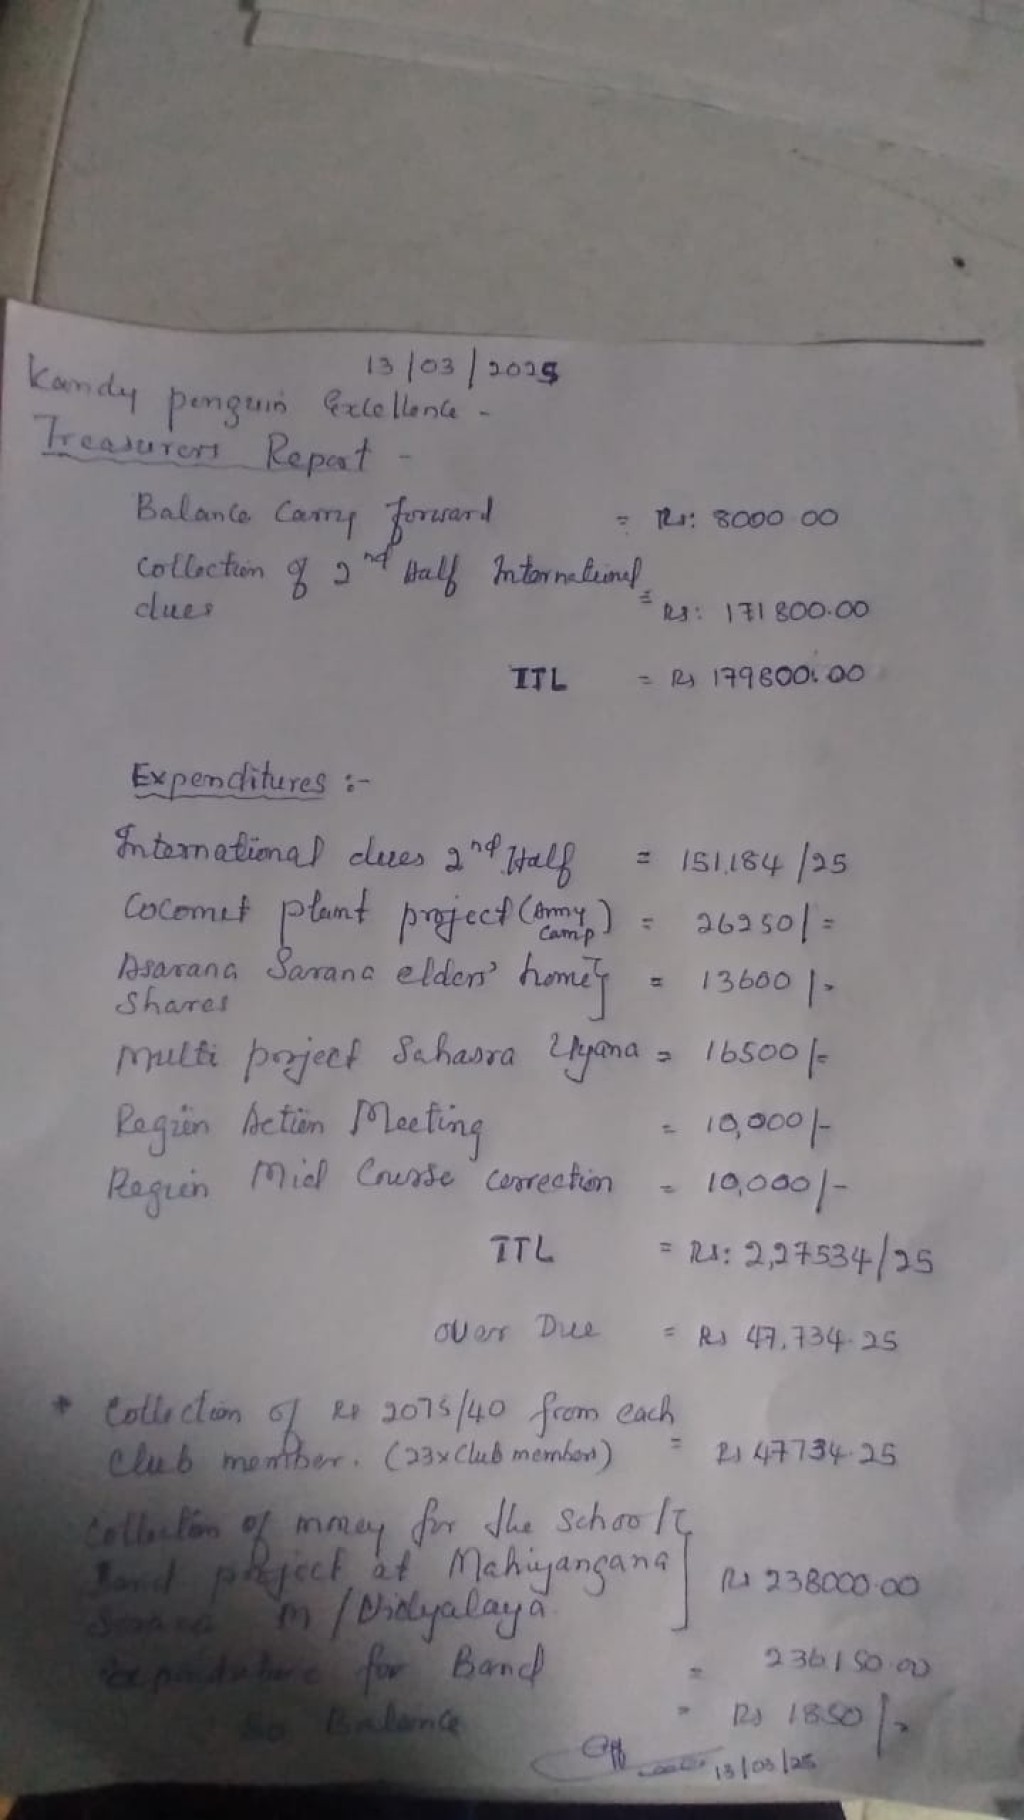 13/03/2025
Kandy penguin Excellence -
Treasurers Report -
Balance Carry forward = Rs: 8000.00
Collection of 2nd Half International
dues = Rs: 171800.00
TTL = Rs 179800.00
Expenditures :-
International dues 2nd Half = 151,184/25
Coconut plant project (Army Camp) = 26250/=
Asarana Sarana elders' home
Shares = 13600/-
Multi porject Sahasra Uyana = 16500/=
Region Action Meeting = 10,000/-
Region Mid Course correction = 10,000/-
TTL = Rs: 2,27534/25
Over Due = Rs 47,734.25
* Collection of Rs 2075/40 from each
Club member. (23x Club members) = Rs 47734.25
Collection of money for the School
Band project at Mahiyangana Rs 238000.00
M/Vidyalaya
Expenditure for Band = 236150.00
Balance = Rs 1850/-
13/03/25